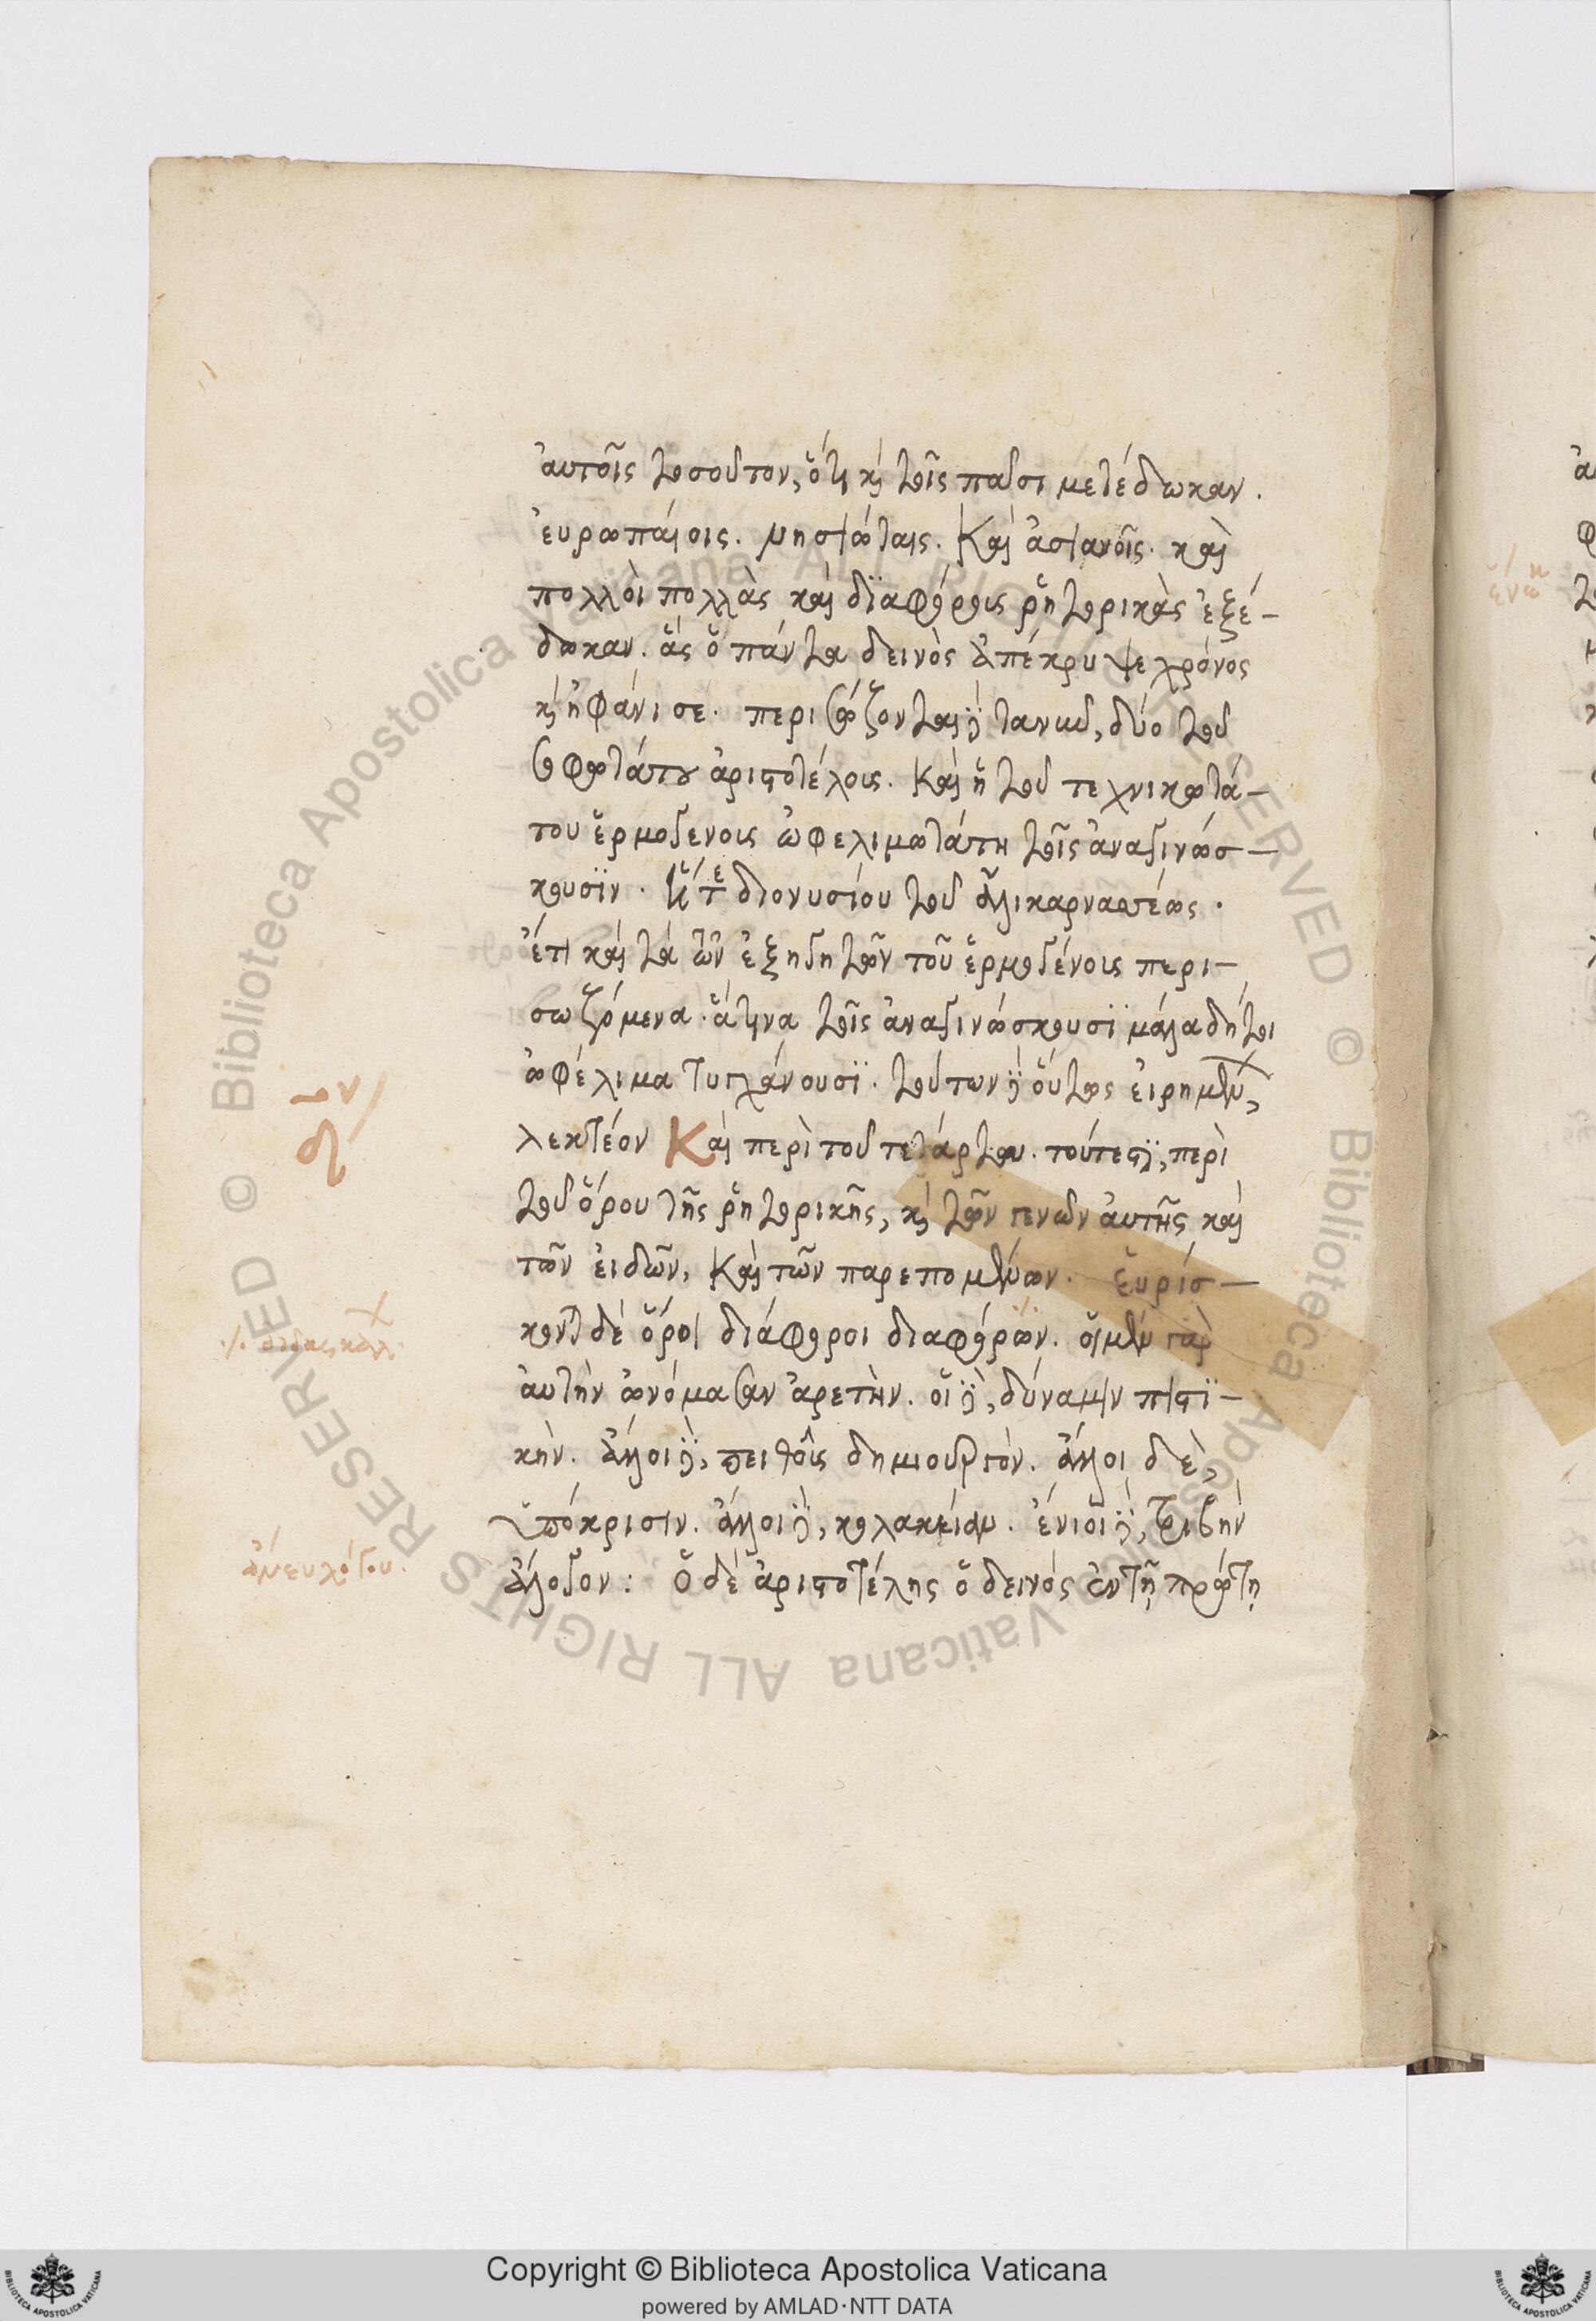 ἀυτοῖς τοσοῦτον, ὅτι κὶ τοῖς πᾶσι μετέδωκαν.
ἐυρωπάιοις. νησιώταις. Καὶ ἀσιανοῖς. καὶ
πολλὸι πολλὰς καὶ διαφόρους ῥητορικὰς ἐξέ-
δωκαν. ἃς ὁ πάντα δεινὸς ἀπέκρυψε χρόνος
κὶ ἠφάνισε. περισώζονται δὲ τανῦν, δύο τοῦ
σοφωτάτου ἀριστοτέλους. Καὶ ἡ τοῦ τεχνικωτά-
του ἑρμογένους ὠφελιμωτάτη τοῖς ἀναγινώσ-
κουσϊν. διονυσίου τοῦ ἁλικαρνασέως.
ἔτι καὶ τὰ τῶν ἐξηγητῶν τοῦ ἑρμογένους περι-
σωζόμενα. ἅτινα τοῖς ἀναγινώσκουσϊ μάλα δήτοι
ὠφέλιμα τυγχάνουσϊ. τούτων δὲ οὕτως ἐιρημένων,
λεκτέον Καὶ περὶ τοῦ τετάρτου. τούτεστϊ, περὶ
τοῦ ὅρου τῆς ῥητορικῆς, κὶ τῶν γενῶν ἀυτῆς καὶ
τῶν ἐιδῶν, Καὶ τῶν παρεπομένων. ἑυρίσ-
κονται δὲ ὅροι διάφοροι διαφόρων. οἱ μὲν γὰρ
ἀυτὴν ὠνόμασαν ἀρετὴν. οἱ δὲ, δύναμιν πιστϊ-
κὴν. ἄλλοι δὲ, πειθοῦς δημιουργὸν. ἄλλοι δὲ,
ὑπόκρισιν. ἄλλοι δὲ, κολακείαν. ἔνιοι δὲ, τριβὴν
ἄλογον: Ὁ δὲ ἀριστοτέλης ὁ δεινός ἐν τῇ πρώτῃ
δ ον
ἄνευ λόγου.